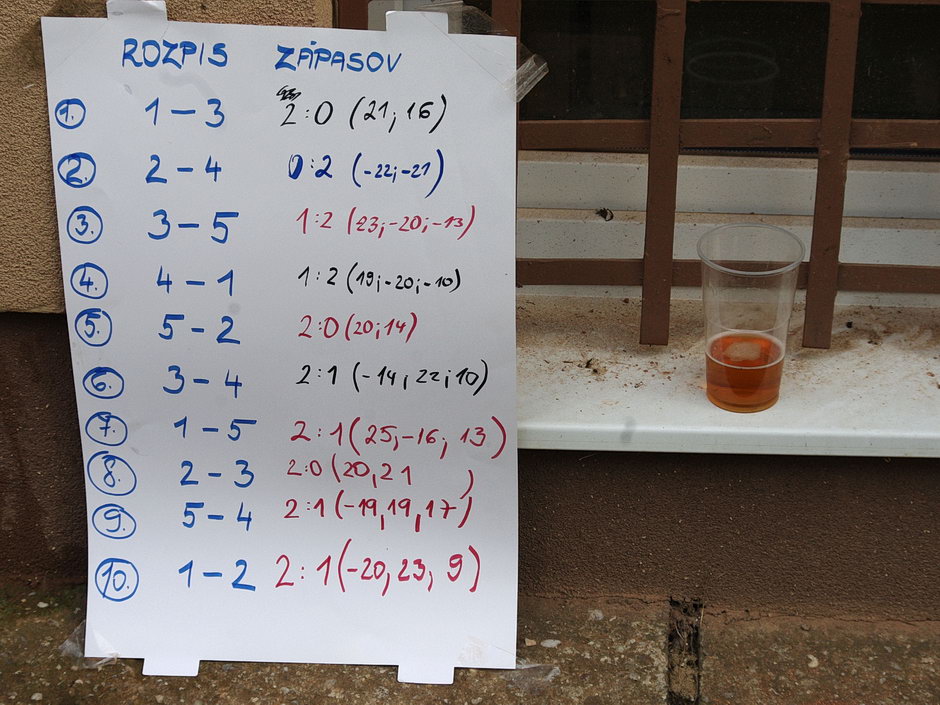 ROZPIS ZÁPASOV
1. 1 – 3 2:0 (21; 16)
2. 2 – 4 0:2 (-22; -21)
3. 3 – 5 1:2 (23; -20; -13)
4. 4 – 1 1:2 (19; -20; -10)
5. 5 – 2 2:0 (20; 14)
6. 3 – 4 2:1 (-14; 22; 10)
7. 1 – 5 2:1 (25, -16, 13)
8. 2 – 3 2:0 (20, 21 )
9. 5 – 4 2:1 (-19, 19, 17)
10. 1 – 2 2:1 (-20, 23, 9)